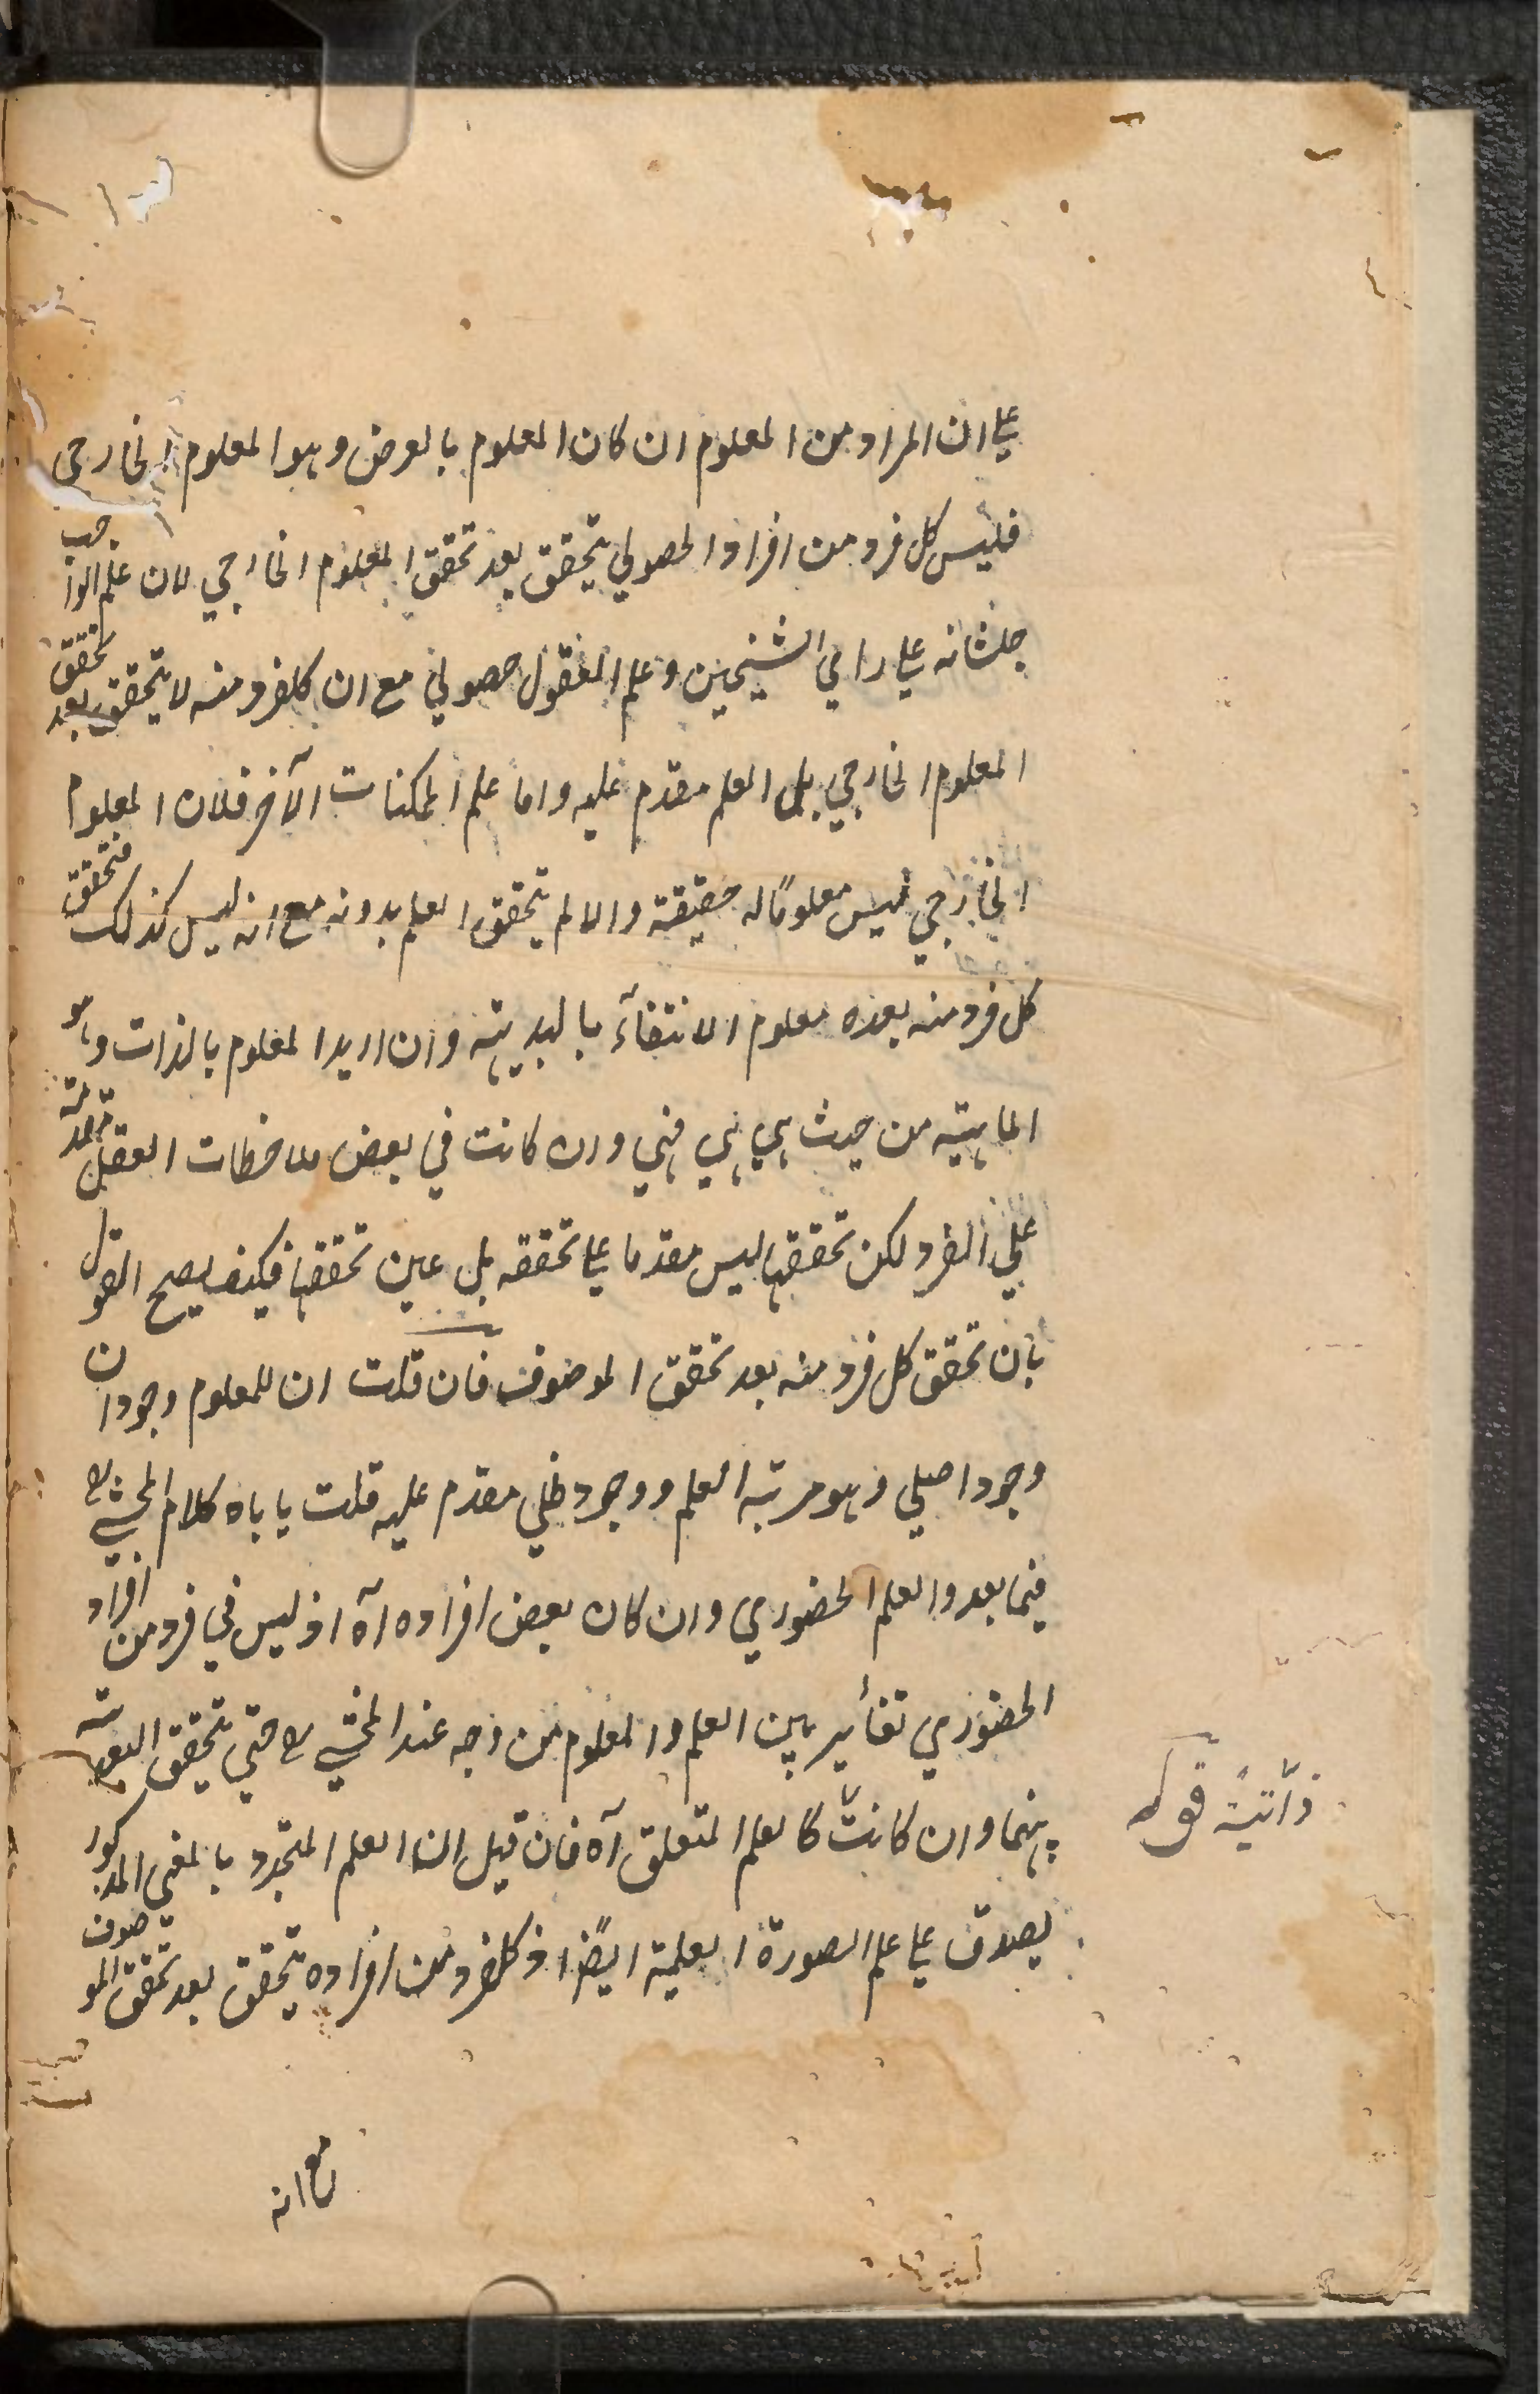 علي ان المراد من المعلوم ان كان المعلوم بالعرض وهو المعلوم الخارجي
فليس كل فرد من افراد الحصولي يتحقق بعد تحقق المعلوم الخارجي لان علم الواجب
جلشانه علي راي الشيخين وعلم العقول حصولي مع ان كلفرد منه لا يتحقق بعد تحقق
المعلوم الخارجي بل العلم مقدم عليه واما علم الممكنات الآخر فلان المعلوم
الخارجي ليس معلومًا له حقيقة والا لم يتحقق العلم بدونه مع انه ليس كذلك فتحقق
كل فرد منه بعده معلوم الانتفآء بالبديهة وان اريد المعلوم بالذات وهو
الماهية من حيث هي هي فهي وان كانت في بعض ملاحظات العقل مقدمة
علي الفرد لكن تحققها ليس مقدما علي تحققه بل عين تحققها فكيف يصح القول
بان تحقق كل فرد منه بعد تحقق الموصوف فان قلت ان للمعلوم وجودان
وجود اصلي وهو مرتبة العلم ووجود ظلي مقدم عليه قلت ياباه كلام المحشي رح
فيما بعد والعلم الحضوري وان كان بعض افراده آه اذ ليس في فرد من افراد
الحضوري تغأير بين العلم والمعلوم من وجه عند المحشي رح حتي يتحقق البعدية
بينهما وان كانت كالعلم المتعلق آه فان قيل ان العلم المتجدد بالمعني المذكور
يصدق علي علم الصورة العلمية ايضًا اذ كلفرد من افراده يتحقق بعد تحقق الموصوف
ذاتية قوله
مع انه